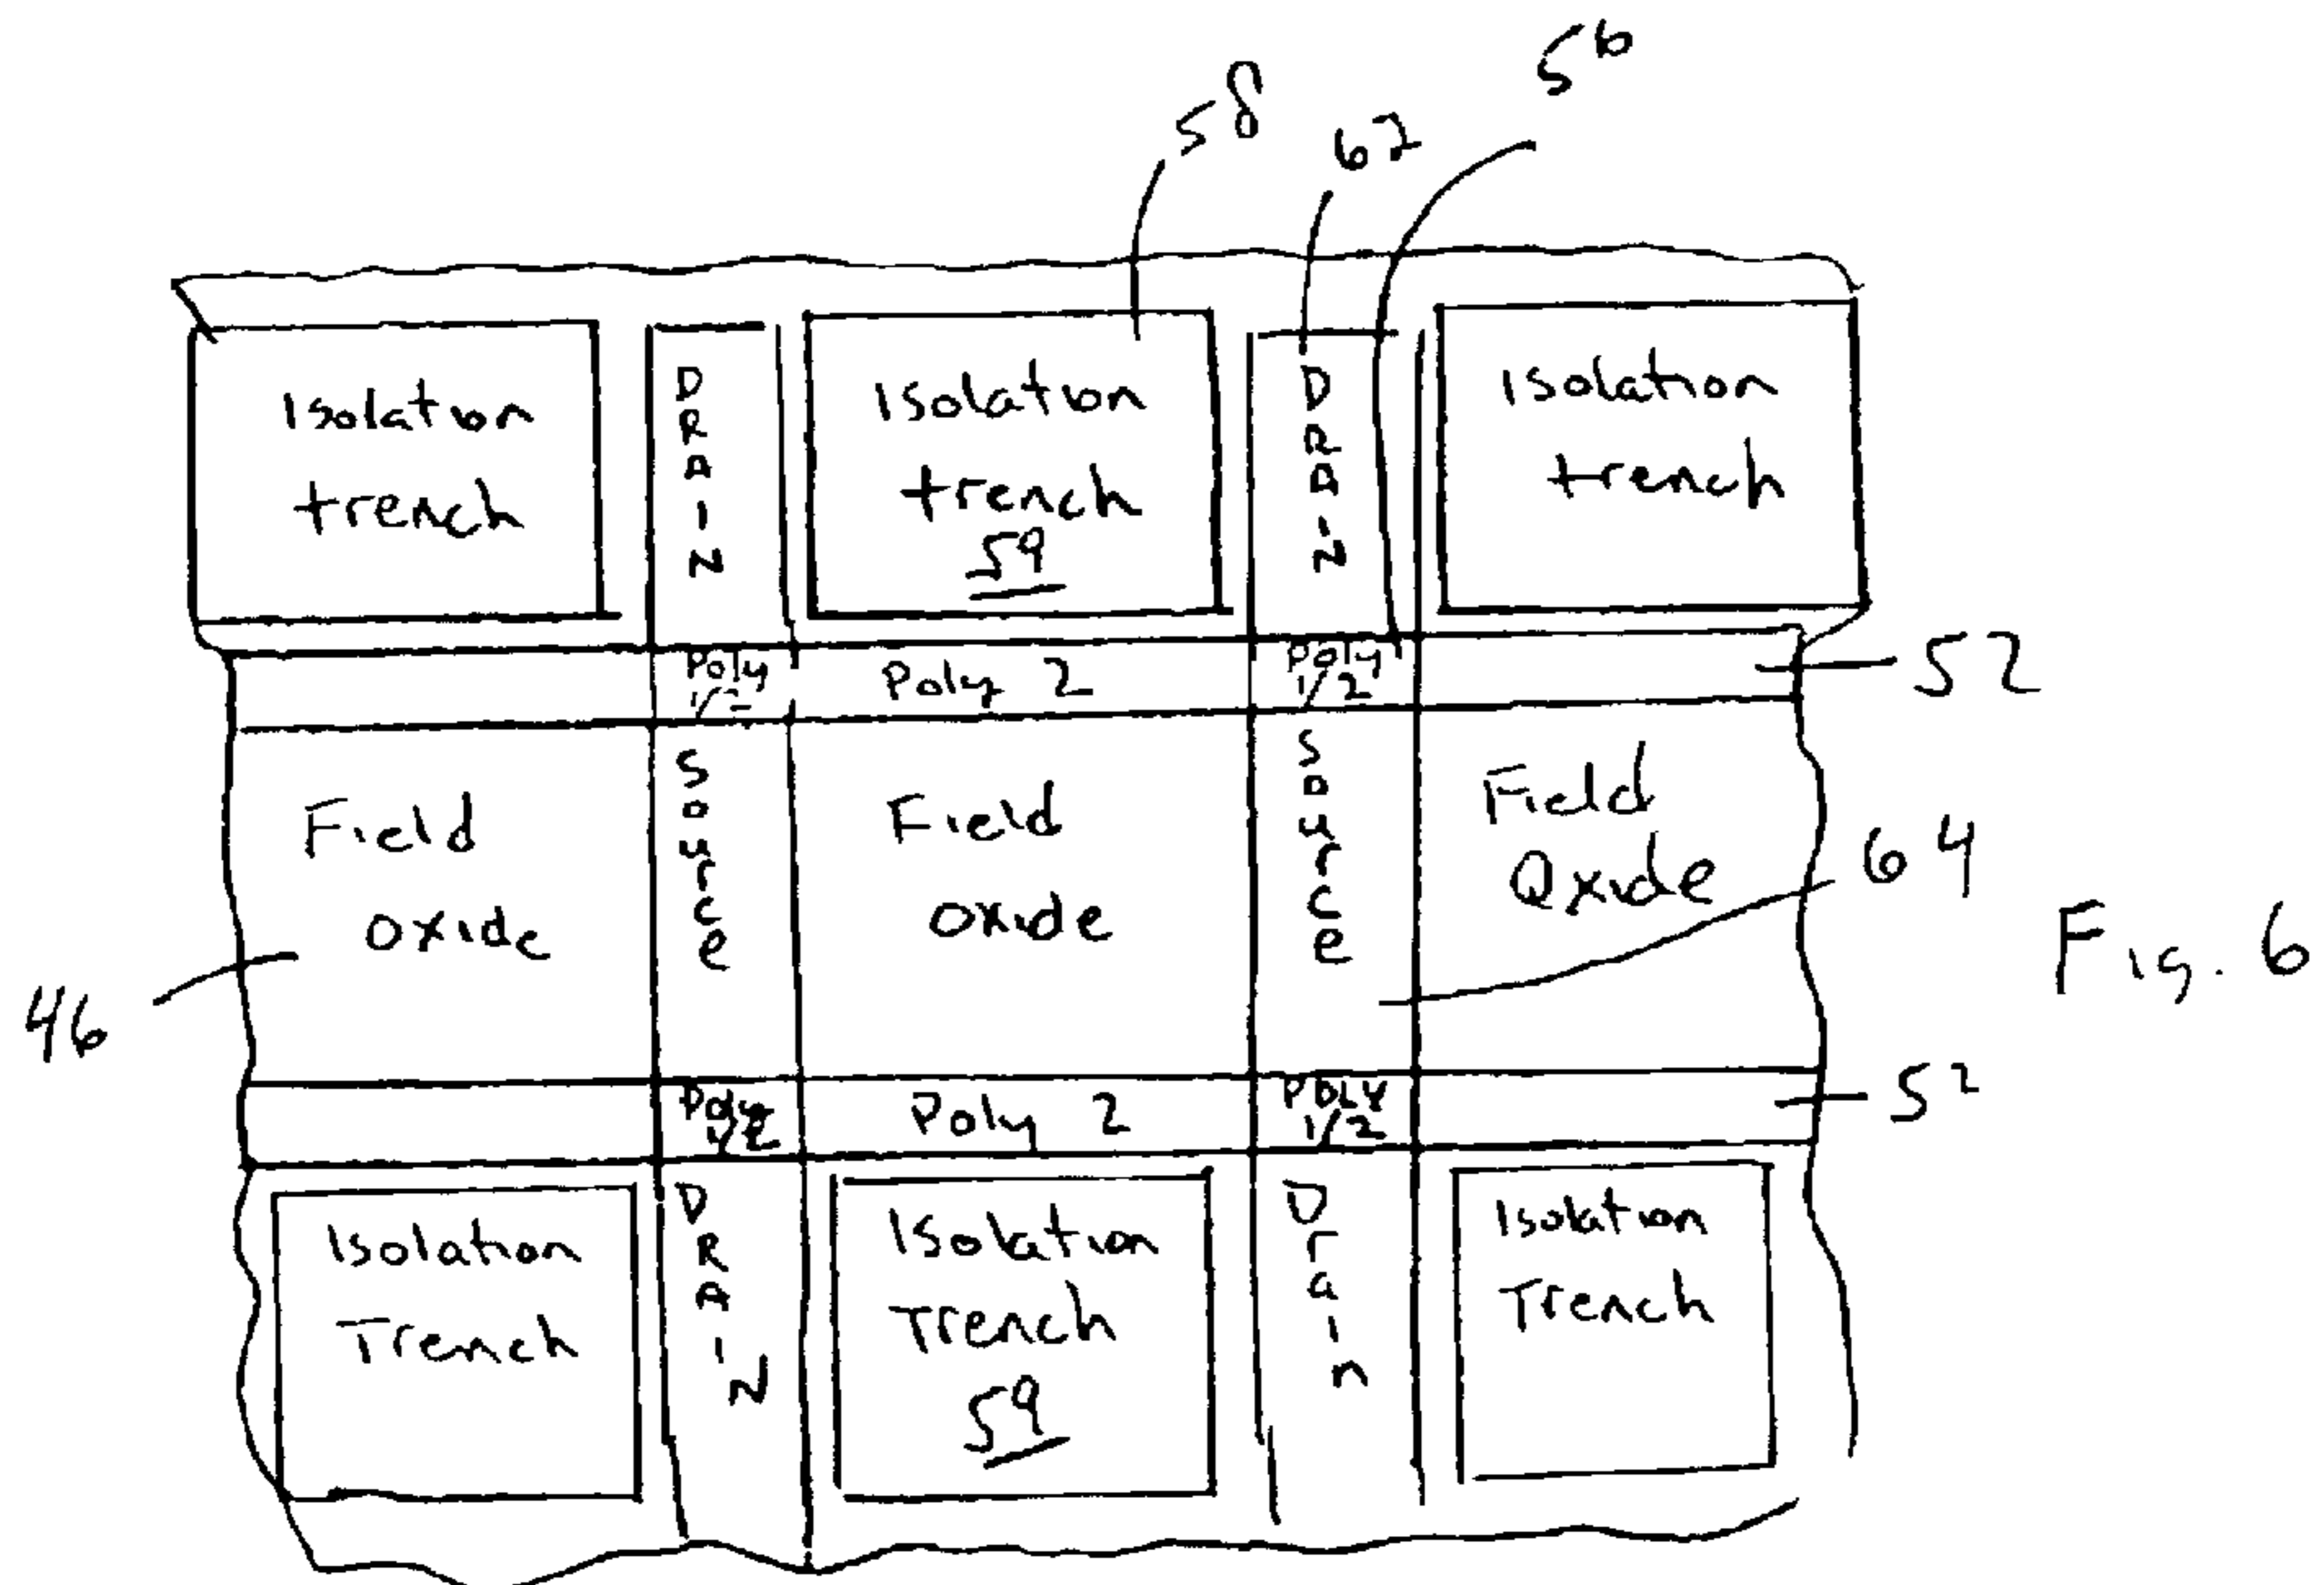 56
58
62
Isolation
trench
DRAIN
Isolation
trench
59
DRAIN
Isolation
trench
Poly
1/2
Poly 2
Poly
1/2
52
Field
oxide
Source
Field
oxide
Source
Field
Oxide
64
Fig. 6
46
Poly
1/2
Poly 2
POLY
1/2
52
Isolation
Trench
DRAIN
Isolation
Trench
59
Drain
Isolation
Trench